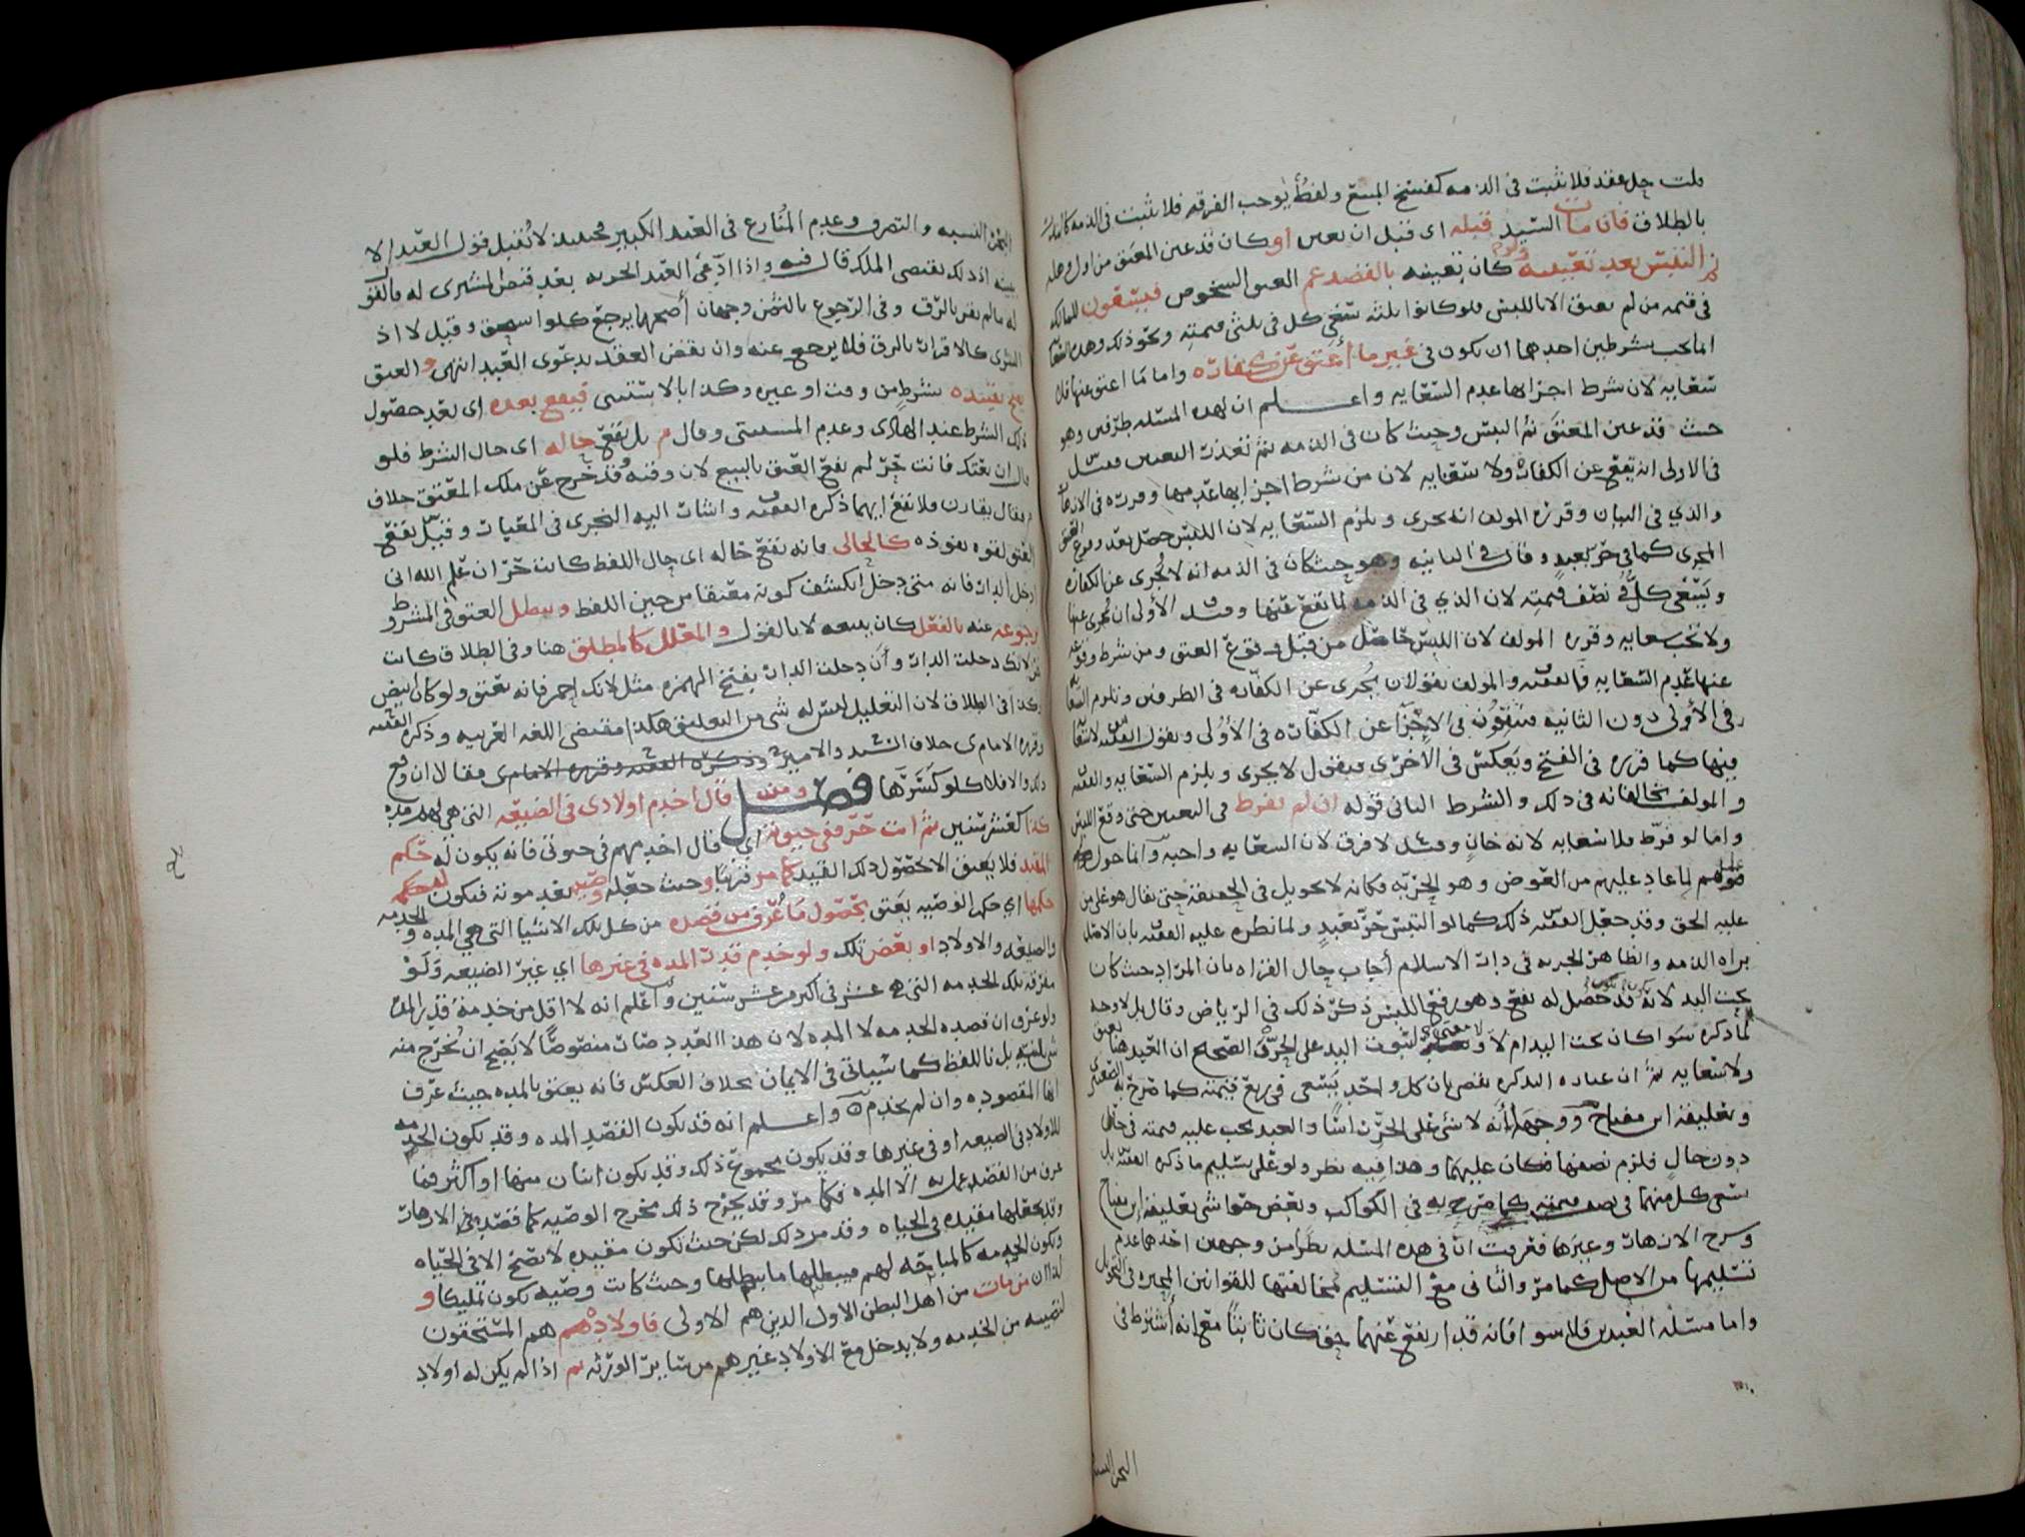 قلت حل عقد فلا يثبت في الذمه كفسخ المبيع ولفظ يوجب الفرقه فلا يثبت في الذمه
بالطلاق فان مات السيد قبله اى قبل ان يعين او كان قد عين المعتق من اول وهله
التبس بعد تعيينه وكان تعيينه بالقصد عم العتق الشخوص فيسعون للمالك
في قيمه من لم يعتق الا باللبس فلو كانوا ثلثه سعى كل في ثلثى قيمته ونحو ذلك وهذه
انما تجب بشرطين احدهما ان يكون في غير ما أعتق عن كفاره واما ما اعتق عنها فلا
سعايه لان شرط اجزائها عدم السعايه واعلم ان لهذه المسئله طرفين وهو
حيث قد عين المعتق ثم التبس وحيث كان في الذمه ثم تعذر التعيين
في الاولى انه يقع عن الكفاره ولا سعايه لان من شرط اجزائها عدمها وقرره في
والذي في البيان وقرره المولف انه يجزى ويلزم السعايه لان اللبس حصل بعد وقوع العتق
المجزى كما في حر بعبد وقال في الثانيه وهو حيث كان في الذمه انه لا يجزى عن الكفاره
ويسعى كل في نصف قيمته لان الذي في الذمه لما يقع عنها وقيل الأولى ان يجزى عنها
ولا تجب سعايه وقرره المولف لان اللبس حاصل من قبل وقوع العتق ومن شرط وقوعه
عنها عدم السعايه فالفقيه والمولف يقولان يجزى عن الكفاره في الطرفين وتلزم السعايه
في الأولى دون الثانيه فيتفقون في الاجزا عن الكفاره في الأولى ويقول الفقيه لا سعايه
فيها كما قرره في الفتح ويعكس في الاخرى فيقول لا يجزى ويلزم السعايه والفقيه
والمولف يخالفانه في ذلك والشرط الثاني قوله ان لم يفرط في التعيين حتى وقع اللبس
واما لو فرط فلا سعايه لانه خان وقيل لا فرق لان السعايه واجبه وانما حول
عليهم لما عاد عليهم من العوض وهو الحريه فكانه لا تحويل في الحقيقه حتى يقال هو على من
عليه الحق وقد جعل الفقيه ذلك كما لو التبس حر بعبد ولما نظره عليه الفقيه بان الاصل
براه الذمه والظاهر الحريه في دار الاسلام أجاب حال القراه بان المراد حيث كان
تحت اليد لانه قد حصل له نفع وهو رفع اللبس ذكر ذلك في الرياض وقال بل لا وجه
لما ذكره سوا كان تحت اليد ام لا لا معنى لثبوت اليد على الحر والصحيح ان العبد هنا يعتق
ولا سعايه ثم ان عباره التذكره تقضى بان كل واحد يسعى في ربع قيمته كما صرح به الصعيترى
وتعليقه ابن مفتاح ووجهه أنه لا شئ على الحر راسا والعبد يجب عليه قيمته في حال
دون حال فلزم نصفها فكان عليهما وهذا فيه نظر ولو على تسليم ما ذكره الفقيه بل
يسعى كل منهما في نصف قيمته كما صرح به في الكواكب وبعض حواشى تعليقه ابن مفتاح
وشرح الازهار وغيرها فعرفت ان في هذه المسئله نظرا من وجهين احدهما عدم
تسليمها من الاصل كما مر والثاني مع التسليم لمخالفتها للقوانين المعتبره في التحويل
واما مسئله العبدين فلا سوا فانه قد ارتفع عنهما حق كان ثابتا مع انه اشترط في
اليمن النسبه والتصرف وعدم المنازع في العبد الكبير فحينئذ لا يقبل قول العبد الا
ببينه اذ ذلك يقتضى الملك قال فيه واذا ادعى العبد الحريه بعد قبض المشترى له فالقول
له ما لم يقر بالرق وفي الرجوع بالثمن وجهان أصحهما يرجع كلو استحق وقيل لا اذ
الشرى كالاقرار بالرق فلا يرجع عنه وان نقض العقد بدعوى العبد انتهى والعتق
يصح تقييده بشرط من وقت او غيره وكذا بالاستثنى فيقع بعده اى بعد حصول
ذلك الشرط عند الهادى وعدم المستثنى وقال م بل يقع حاله اى حال الشرط فلو
قال ان بعتك فانت حر لم يقع العتق بالبيع لان وقته وقد خرج عن ملك المعتق خلاف
العتق لقوه نفوذه كالحالى فانه يقع حاله اى حال اللفظ كانت حر ان علم الله انى
ادخل الدار فانه متى دخل انكشف كونه معتقا من حين اللفظ ويبطل العتق في المشروط
رجوعه عنه بالفعل كان يبيعه لا بالقول والمعلل كالمطلق هنا وفي الطلاق كانت
حر لانك دخلت الدار وأن دخلت الدار بفتح الهمزه مثل لانك احمر فانه يعتق ولو كان ابيض
وكذا في الطلاق لان التعليل ليس له شى من التعليق هكذا مقتضى اللغه العربيه وذكره الفقيه
ذلك والا فلا كلو كسرها فصل ومن قال اخدم اولادى في الضيعه التى هى
كذا كعشر سنين ثم انت حر فى حيوته اى قال اخدمهم في حيوتى فانه يكون له حكم
المقيد فلا يعتق الا بحصول ذلك القيد كما مر قريبا وحيث جعله وصيه بعد موته فيكون له حكمه
حكمها اي حكم الوصيه يعتق بحصول ما عرف من قصده من كل تلك الاشيا التى هى المده والخدمه
والضيعه والاولاد او بعض تلك ولو خدم قدر المده في غيرها اي غير الضيعه ولو
مفرقه تلك الخدمه التى هى عشر في اكثر من عشر سنين واعلم انه لا اقل من خدمه قدر المده
ولو عرف ان قصده الخدمه لا المده لان هذا العدد صار منصوصا لا يصح ان يخرج منه
شى بالنيه بل باللفظ كما سياتى في الايمان بخلاف العكس فانه يعتق بالمده حيث عرف
انها المقصوده وان لم يخدم واعلم انه قد يكون القصد المده وقد يكون الخدمه
للاولاد في الضيعه او في غيرها وقد يكون مجموع ذلك وقد يكون اثنان منها او اكثر فما
عرف من القصد عمل به الا المده فكما مر وقد يخرج ذلك مخرج الوصيه كما قصد في الازهار
وقد يجعلها مقيده في الحياه وقد مر ذلك لكن حيث تكون مقيده لا تصح الا في الحياه
وتكون الخدمه كالمباحه لهم فيبطلها ما يبطلها وحيث كانت وصيه تكون تمليكا و
لذا ان من مات من اهل البطن الاول الذين هم الاولى فاولادهم هم المستحقون
لنصيبه من الخدمه ولا يدخل مع الاولاد غيرهم من سائر الورثه ثم اذا لم يكن له اولاد